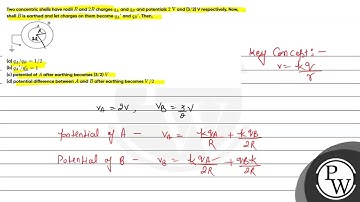 Two concentric shells have radii R and 2R charges qA and qB and potentials 2 V and (3/2) V respectively. Now,
shell B is earthed and let charges on them become qA' and qB'. Then,
(a) qA/qB = 1/2
(b) qA'/qB' = 1
(c) potential of A after earthing becomes (3/2) V
(d) potential difference between A and B after earthing becomes V/2
Key Concept:-
v = kq/r
VA = 2V, VB = 3/2 V
potential of A - VA = kqA/R + kqB/2R
Potential of B - VB = kqA/2R + qBk/2R
PW